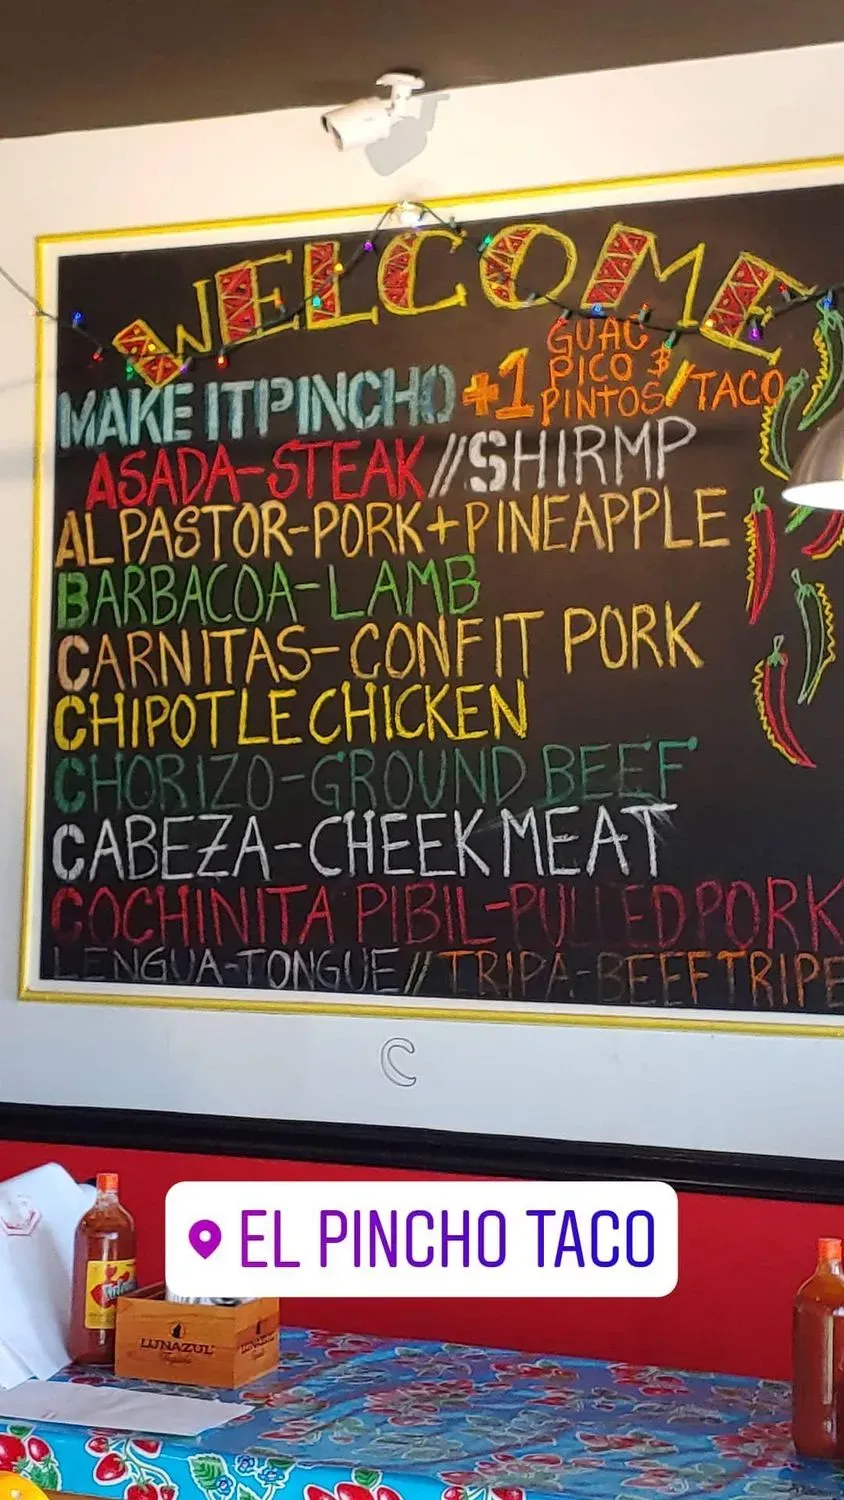 WELCOME
MAKE IT PINCHO +1 GUAC PICO & PINTOS/TACO
ASADA-STEAK//SHIRMP
AL PASTOR-PORK+PINEAPPLE
BARBACOA-LAMB
CARNITAS-CONFIT PORK
CHIPOTLE CHICKEN
CHORIZO-GROUND BEEF
CABEZA-CHEEK MEAT
COCHINITA PIBIL-PULLED PORK
LENGUA-TONGUE//TRIPA-BEEF TRIPE
EL PINCHO TACO
LUNAZUL